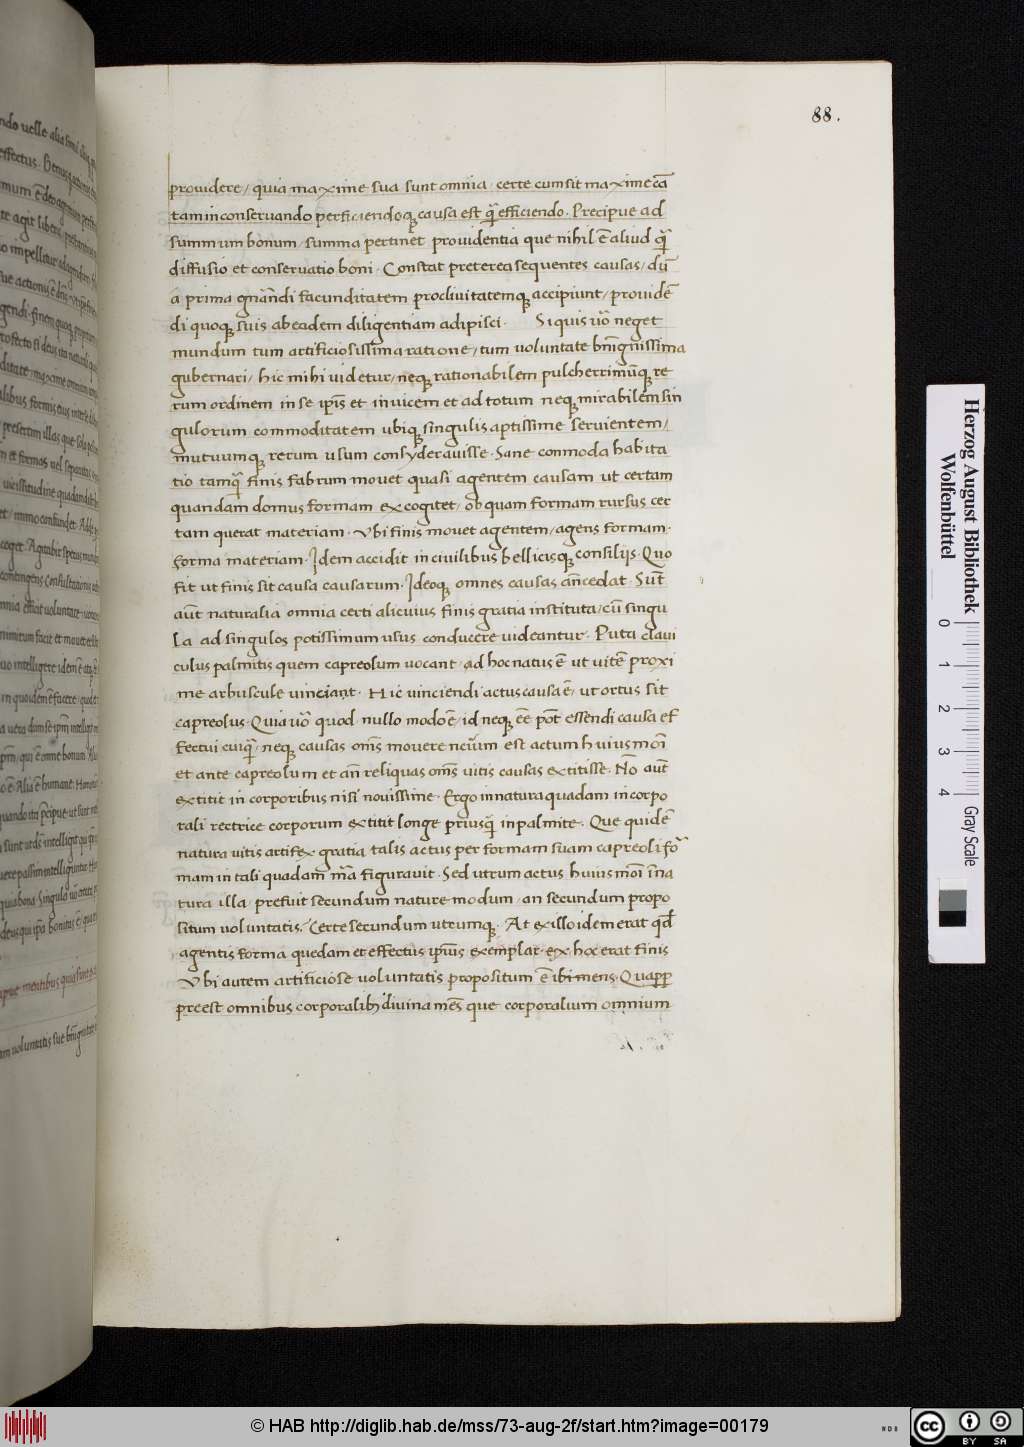 88.
prouidere / quia maxime sua sunt omnia · certe cum sit maxime cā
tam in conseruando perficiendoqꝫ causa est q̄ȝ efficiendo · Precipue ad
summum bonum / summa pertinet prouidentia que nihil ē aliud q̄ȝ
diffusio et conseruatio boni · Constat preterea sequentes causas / dū
a prima gn̄andi facunditatem procliuitatemqꝫ accipiunt / prouidē
di quoqꝫ suis ab eadem diligentiam adipisci · Si quis ūo neget
mundum tum artificiosissima ratione / tum uoluntate bn̄ignissima
gubernari / hic mihi uidetur / neqꝫ rationabilem pulcherrimūqꝫ re
rum ordinem in se ip̄is et inuicem et ad totum neqꝫ mirabilem sin
gulorum commoditatem ubiqꝫ singulis aptissime seruientem /
mutuumqꝫ rerum usum consyderauisse · Sane conmoda habita
tio tamq̄ȝ finis fabrum mouet quasi agentem causam ut certam
quandam domus formam excogitet / ob quam formam rursus cer
tam querat materiam · Vbi finis mouet agentem / agens formam ·
forma materiam · Idem accidit in ciuilibus bellicisqꝫ consilijs · Quo
fit ut finis sit causa causarum · Ideoqꝫ omnes causas an̄cedat · Sūt
aūt naturalia omnia certi alicuius finis gratia instituta / cū singu
la ad singulos potissimum usus conducere uideantur · Puta claui
culus palmitis quem capreolum uocant / ad hoc natus ē ut uitē proxi
me arbuscule uinciant · Hic uinciendi actus causa ē / ut ortus sit
capreolus · Quia ūo quod nullo modo ē / id neqꝫ eē pōt essendi causa ef
fectui cuiq̄ȝ / neqꝫ causas om̄s mouere nc̄ium est actum huius mōi
et ante capreolum et an̄ reliquas om̄s uitis causas extitisse · Nō aūt
extitit in corporibus nisi nouissime · Ergo in natura quadam incorpo
rali rectrice corporum extitit longe priusq̄ȝ in palmite · Que quidē
natura uitis artifex gratia talis actus per formam suam capreoli fō
mam in tali quadam mā figurauit · Sed utrum actus huius mōi in na
tura illa · prefuit secundum nature modum / an secundum propo
situm uoluntatis? Certe secundum utrumqꝫ · At ex illo idem erat qd̄
agentis forma quedam et effectus ip̄ius exemplar · ex hoc erat finis
Vbi autem artificiose uoluntatis propositum ē ibi mens · Quapp̱
preest omnibus corporalibꝫ diuina mēs que corporalium omnium
Herzog August Bibliothek
Wolfenbüttel
0 1 2 3 4
Gray Scale
© HAB http://diglib.hab.de/mss/73-aug-2f/start.htm?image=00179
WDB
cc BY SA